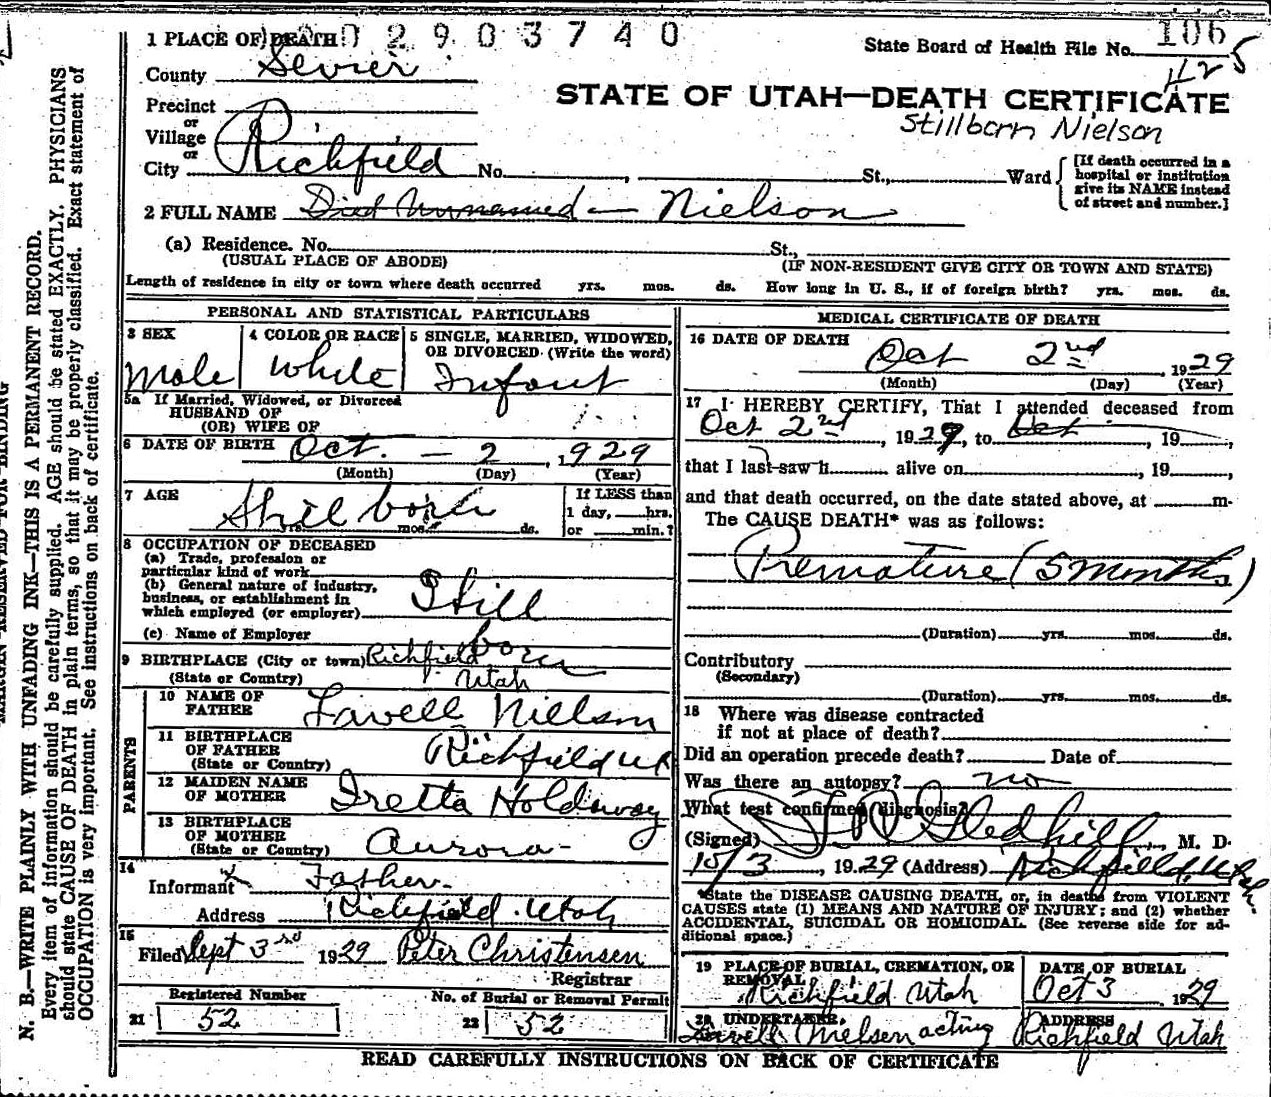 1 PLACE OF DEATH 0 2 9 0 3 7 4 0
State Board of Health File No. 106
425
County Sevier
STATE OF UTAH—DEATH CERTIFICATE
Stillborn Nielson
Precinct
or
Village
or
City Richfield No. , St., Ward
[If death occurred in a
hospital or institution
give its NAME instead
of street and number.]
2 FULL NAME Died Unnamed — Nielson
(a) Residence. No. St.,
(USUAL PLACE OF ABODE) (IF NON-RESIDENT GIVE CITY OR TOWN AND STATE)
Length of residence in city or town where death occurred yrs. mos. ds. How long in U. S., if of foreign birth? yrs. mos. ds.
PERSONAL AND STATISTICAL PARTICULARS
3 SEX
Male
4 COLOR OR RACE
White
5 SINGLE, MARRIED, WIDOWED,
OR DIVORCED (Write the word)
Infant
5a If Married, Widowed, or Divorced
HUSBAND OF
(OR) WIFE OF
6 DATE OF BIRTH Oct. — 2 , 1929
(Month) (Day) (Year)
7 AGE
Stillborn
yrs. mos. ds.
If LESS than
1 day, hrs.
or min.?
8 OCCUPATION OF DECEASED
(a) Trade, profession or
particular kind of work
(b) General nature of industry,
business, or establishment in
which employed (or employer)
Still
born
(c) Name of Employer
9 BIRTHPLACE (City or town) Richfield
(State or Country) Utah
PARENTS
10 NAME OF
FATHER Lavell Nielson
11 BIRTHPLACE
OF FATHER
(State or Country) Richfield Ut
12 MAIDEN NAME
OF MOTHER Iretta Holdaway
13 BIRTHPLACE
OF MOTHER
(State or Country) Aurora -
14
Informant x Father.
Address Richfield. Utah
15
Filed Sept 3rd 1929 Peter Christensen
Registrar
Registered Number
21 52
No. of Burial or Removal Permit
22 52
MEDICAL CERTIFICATE OF DEATH
16 DATE OF DEATH
Oct 2nd , 1929
(Month) (Day) (Year)
17 I HEREBY CERTIFY, That I attended deceased from
Oct 2nd , 1929, to Oct , 19 ,
that I last saw h alive on , 19 ,
and that death occurred, on the date stated above, at m.
The CAUSE DEATH* was as follows:
Premature (5 months)
(Duration) yrs. mos. ds.
Contributory
(Secondary)
(Duration) yrs. mos. ds.
18 Where was disease contracted
if not at place of death?
Did an operation precede death? Date of
Was there an autopsy? no
What test confirmed diagnosis?
(Signed) Gledhill, M. D.
10/3 , 1929 (Address) Richfield, Utah.
*State the DISEASE CAUSING DEATH, or, in deaths from VIOLENT
CAUSES state (1) MEANS AND NATURE OF INJURY; and (2) whether
ACCIDENTAL, SUICIDAL OR HOMICIDAL. (See reverse side for ad-
ditional space.)
19 PLACE OF BURIAL, CREMATION, OR
REMOVAL
Richfield Utah
DATE OF BURIAL
Oct 3 , 1929
20 UNDERTAKER,
Lavell Nielsen acting
ADDRESS
Richfield Utah
READ CAREFULLY INSTRUCTIONS ON BACK OF CERTIFICATE
MARGIN RESERVED FOR BINDING
N. B.—WRITE PLAINLY WITH UNFADING INK—THIS IS A PERMANENT RECORD.
Every item of information should be carefully supplied. AGE should be stated EXACTLY. PHYSICIANS
should state CAUSE OF DEATH in plain terms, so that it may be properly classified. Exact statement of
OCCUPATION is very important. See instructions on back of certificate.